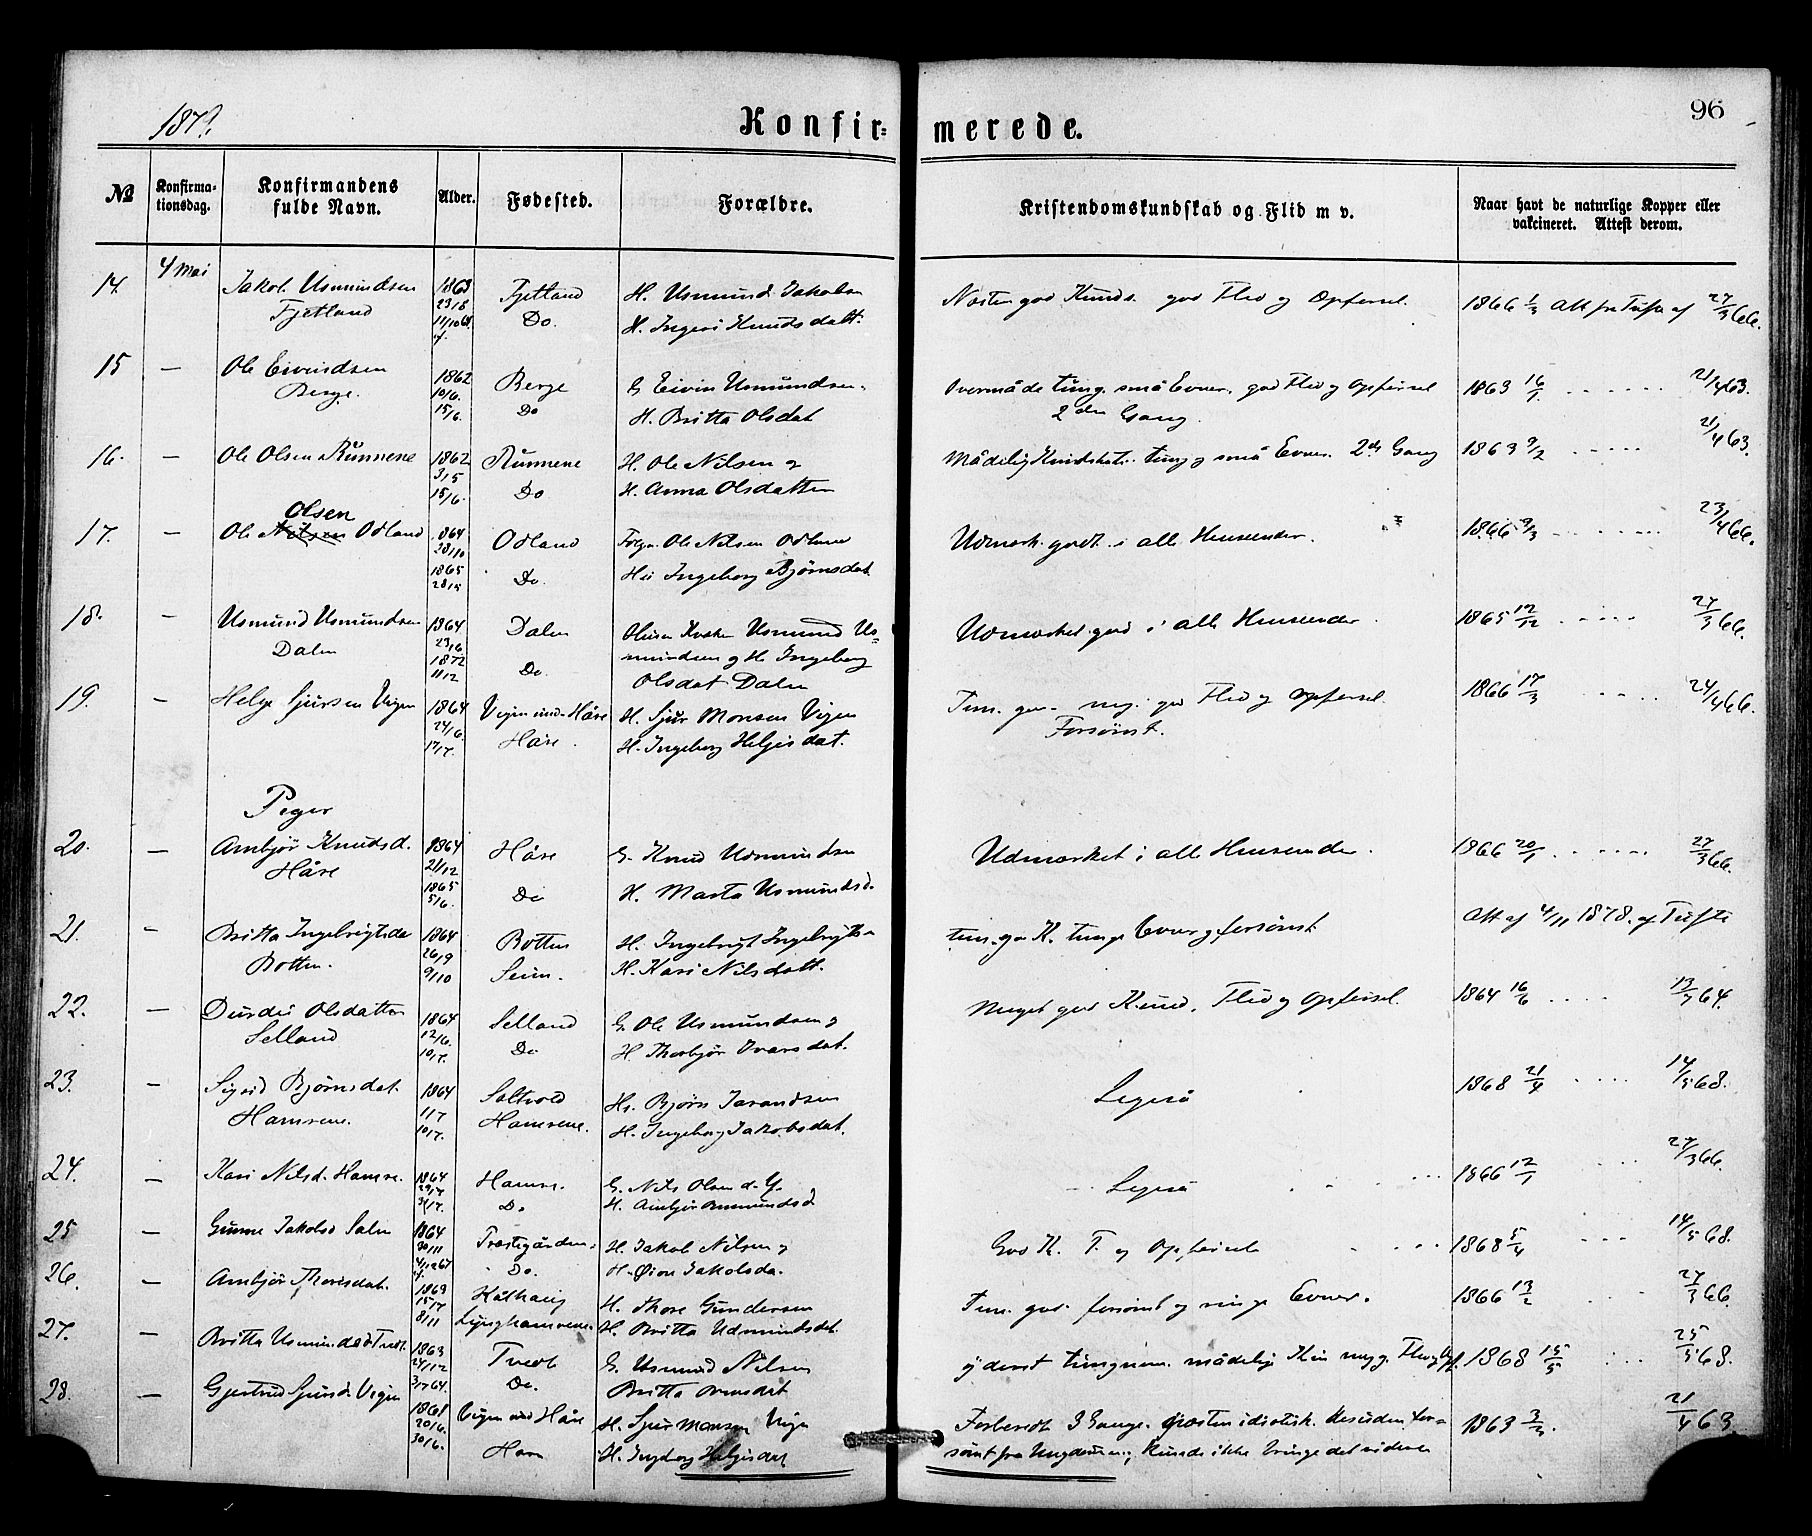 1879.
Konfir-merede.
96
№
Konfirma-
tionsdag.
Konfirmandens
fulde Navn.
Alder.
Fødested.
Forældre.
Kristendomskundskab og Flid m v.
Naar havt de naturlige Kopper eller
vakcineret. Attest derom.
14. 4 Mai Jakob Usmundsen 1863 Fjetland H. Usmund Jakobsen god Kunds. god Flid og Opførsel. 1866 1/3 Att fra Tufte af 27/3 66.
Fjetland 23/8 Do. H. Ingeri Knudsdatt.
11/10 63
15 — Ole Eivindsen 1862 Berge G Eivin Usmundsen. Overmåde tung. små Evner. god Flid og Opførsel 1863 16/1 21/4 63.
Berge. 10/6. Do H. Britta Olsdat 2den Gang.
15/6.
16. — Ole Olsen Runnene 1862 Runnene H. Ole Nilsen og små Evner. 2den Gang 1863 9/2 21/4 63.
3/5 Do H. Anna Olsdatter
15/6.
Olsen
17. — Ole Nilsen Odland 1864 Odland Ole Nilsen Odland Udmærk. godt i alle Henseender. 1866 9/3 23/4 66.
28/10 Do. Ingeborg Bjørnsdat
1865
28/5
18. — Usmund Usmundsen 1864 Dalen Usmund Us- Udmærket god i alle Henseender. 1865 12/12 27/3 66.
Dalen 23/6. Do. mundsen og H. Ingeborg
1872 Olsdat Dalen
11/12
19. — Helge Sjursen Vigen 1864 Vigen und. Håre H. Sjur Monsen Vigen god Flid og Opførsel. 1866 17/3 24/4 66.
24/6. Håre. H. Ingeborg Helgesdat. Forsømt.
17/7.
Piger
20. — Ambjør Knudsd. 1864 Håre G. Knud Usmundsen Udmærket i alle Henseender. 1866 20/1 27/3 66.
Håre 21/12 Do H. Marta Usmundsd.
1865
5/6.
21. — Britta Ingebrigtsda 1864 Botten H. Ingebrigt Ingebrigts- K. tunge Evner og forsømt Att af 4/11 1878. af Tufte
Botten. 26/9 Seim. H. Kari Nilsdatt.
9/10
22. — Durdei Olsdatter 1864 Selland G. Ole Usmundsen og Meget god Kund. Flid og Opførsel. 1864 16/6 13/7 64.
Selland 12/6. Do H. Thorbjør Ivarsdat.
10/7.
23. — Sigrid Bjørnsdat. 1864 Saltvold Hs. Bjørn Jarandsen Ligeså 1868 21/4 14/5 68.
Hamrene. 1/7 Hamrene. H. Ingeborg Jakobsdat.
10/7.
24. — Kari Nilsd. Hamre. 1864 Hamre. G. Nils Olsen d. Y. Ligeså 1866 12/1 27/3 66.
29/7 Do H. Ambjør Amundsd
31/7.
25 — Gunne Jakobsd 1864 Præstegården. H. Jakob Nilsen og God K. F. og Opførsel 1868 5/4 14/5 68.
30/11 Do. H. Jakobsda.
26. — Ambjør Thoresdat. 1863 H. Thore Gundersen god. forsømt og ringe Evner. 1866 13/2 27/3 66.
15/7 H. Britta Udmundsdat.
8/11
27. — Britta Usmundsd Tvedt. 1863 Tvedt G. Usmund Nilsen yderst tungnem. mådelig 1868 15/5 25/5 68.
24/12 Do. Britta
3/7 64.
28. — Gjertrud Sjursd. Vigen 1861 Vigen und Håre H. Sjur Monsen Vigen Forberedt 3 Gange. næsten idiotisk. desuden for- 1863 3/3. 21/4 63
20/6. H. Ingeborg Helgesdat sømt fra Ungdommen; kunde ikke bringe det videre
30/6.